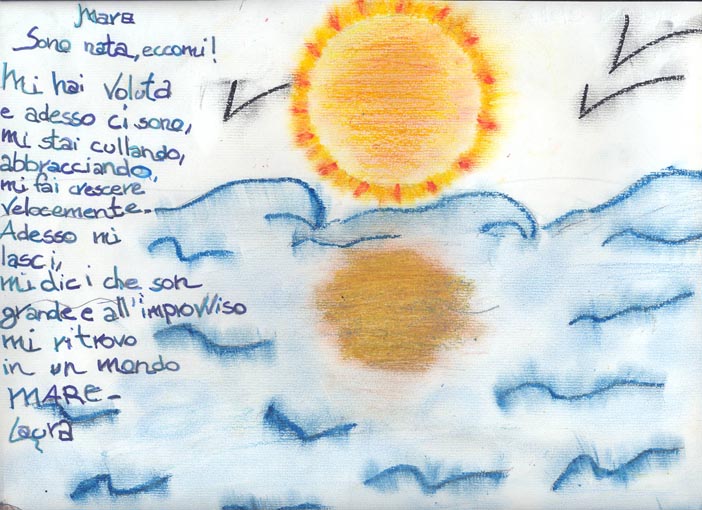 Mara
Sono nata, eccomi!
Mi hai voluta
e adesso ci sono,
mi stai cullando,
abbracciando,
mi fai crescere
velocemente-
Adesso mi
lasci,
mi dici che son
grande e all'improvviso
mi ritrovo
in un mondo
MARE-
Laura